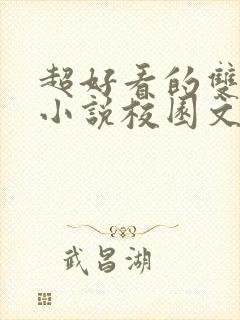 超好看的雙
小說校園文
武昌湖